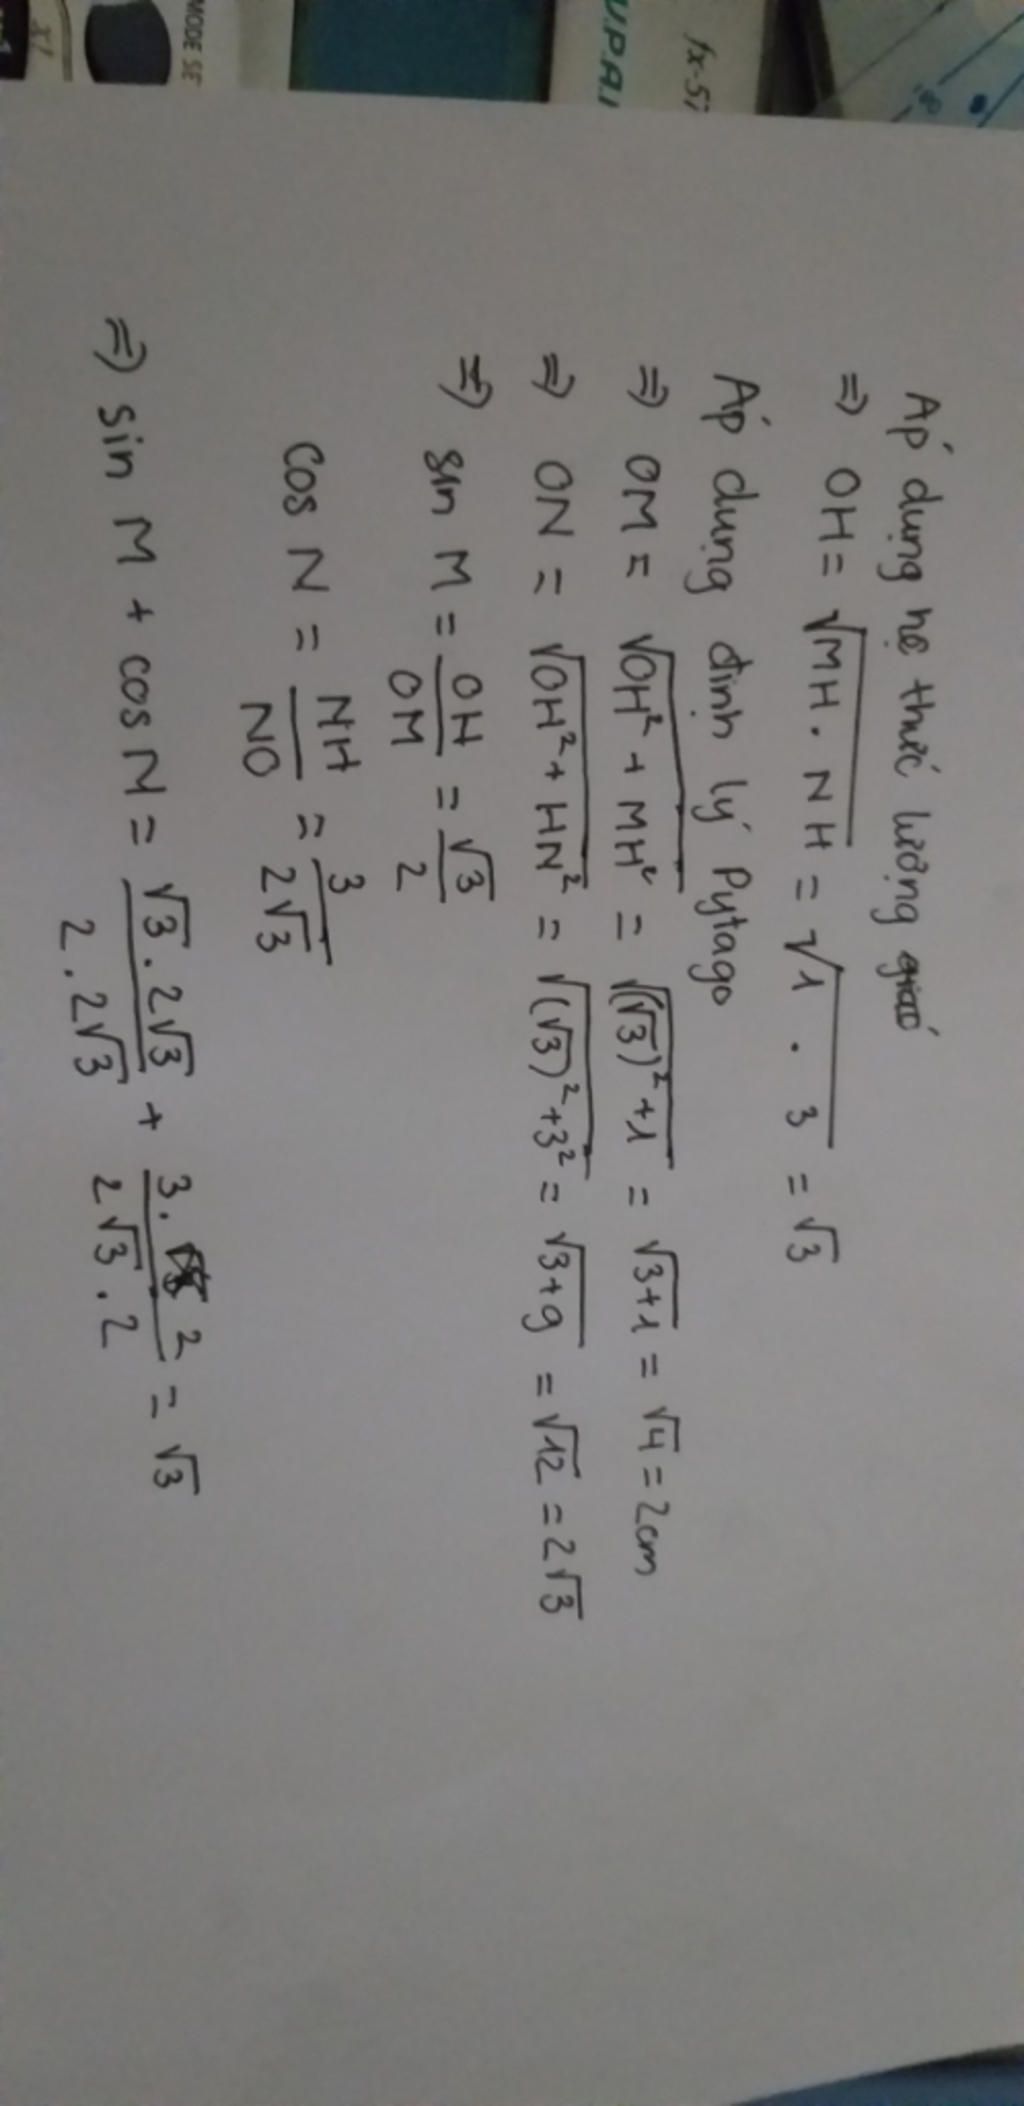 Áp dụng hệ thức lượng
=> OH = √MH . NH = √1 . 3 = √3
Áp dụng định lý Pytago
=> OM = √OH² + MH² = √(√3)² + 1 = √3+1 = √4 = 2cm
=> ON = √OH² + HN² = √(√3)² + 3² = √3+9 = √12 = 2√3
=> sin M = OH/OM = √3/2
cos N = NH/NO = 3/2√3
=> sin M + cos N = √3 . 2√3/2 . 2√3 + 3 . 2/2√3 . 2 = √3
fx-5
V.P.A.
MODE SE